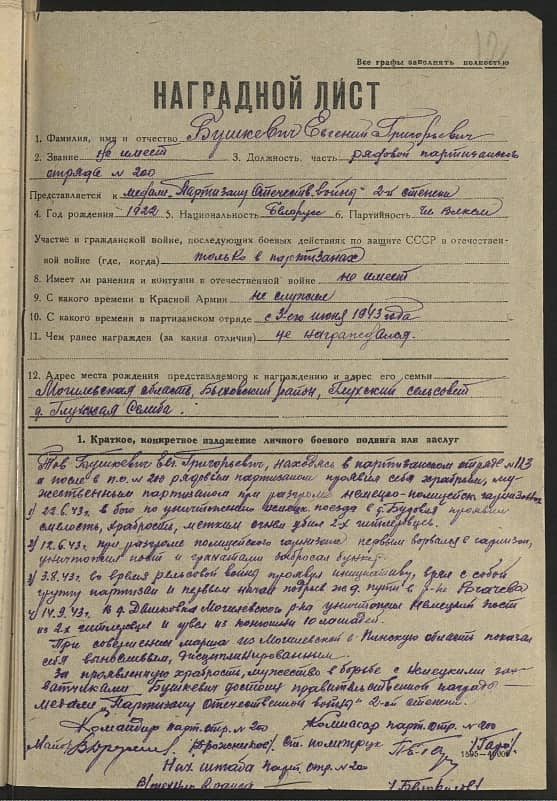 12
Все графы заполнять полностью
НАГРАДНОЙ ЛИСТ
1. Фамилия, имя и отчество Бушкевич Евгений Григорьевич
2. Звание не имеет 3. Должность, часть рядовой партизанск.
отряда № 200
Представляется к медали "Партизану Отечеств. войны" 2-й степени
4. Год рождения 1922 5. Национальность Белорус 6. Партийность чл ВЛКСМ
Участие в гражданской войне, последующих боевых действиях по защите СССР и отечествен-
ной войне (где, когда) только в партизанах
8. Имеет ли ранения и контузии в отечественной войне не имеет
9. С какого времени в Красной Армии не служил
10. С какого времени в партизанском отряде с 3-его июня 1943 года
11. Чем ранее награжден (за какие отличия) не награждался.
12. Адрес места рождения представляемого к награждению и адрес его семьи
Могилевская область, Быховский район, Глухский сельсовет
д. Глухская Селиба.
1. Краткое, конкретное изложение личного боевого подвига или заслуг
Тов Бушкевич Евг. Григорьевич, находясь в партизанском отряде № 113
и после в п.о. № 200 рядовым партизаном проявил себя храбрым, му-
жественным партизаном при разгроме немецко-полицейск. гарнизонов
1) 22.6.43г. в бою по уничтожению немецк. поезда в д. проявил
смелость, храбрость, метким огнем убил 2-х гитлеровцев.
2) 12.6.43г. при разгроме полицейского гарнизона первым ворвался в гарнизон,
уничтожил пост и гранатами забросал бункер.
3) 3.8.43г. во время рельсовой войны проявил инициативу, взял с собой
группу партизан и первым начал подрыв ж.д. пути в р-не
4) 14.9.43г. в д. Могилевского р-на уничтожил немецкий пост
из 2х гитлеровцев и увел из 10 лошадей.
При совершении марша из Могилевской в Пинскую область показал
себя выносливым, дисциплинированным.
За проявленную храбрость, мужество в борьбе с немецкими зах-
ватчиками Бушкевич достоин правительственной награды
медали "Партизану Отечественной войны" 2-ой степени.
Командир парт. отр. № 200 Комиссар парт. отр. № 200
Майор Ст. политрук
1595-40000
Нач штаба парт. отр. № 200